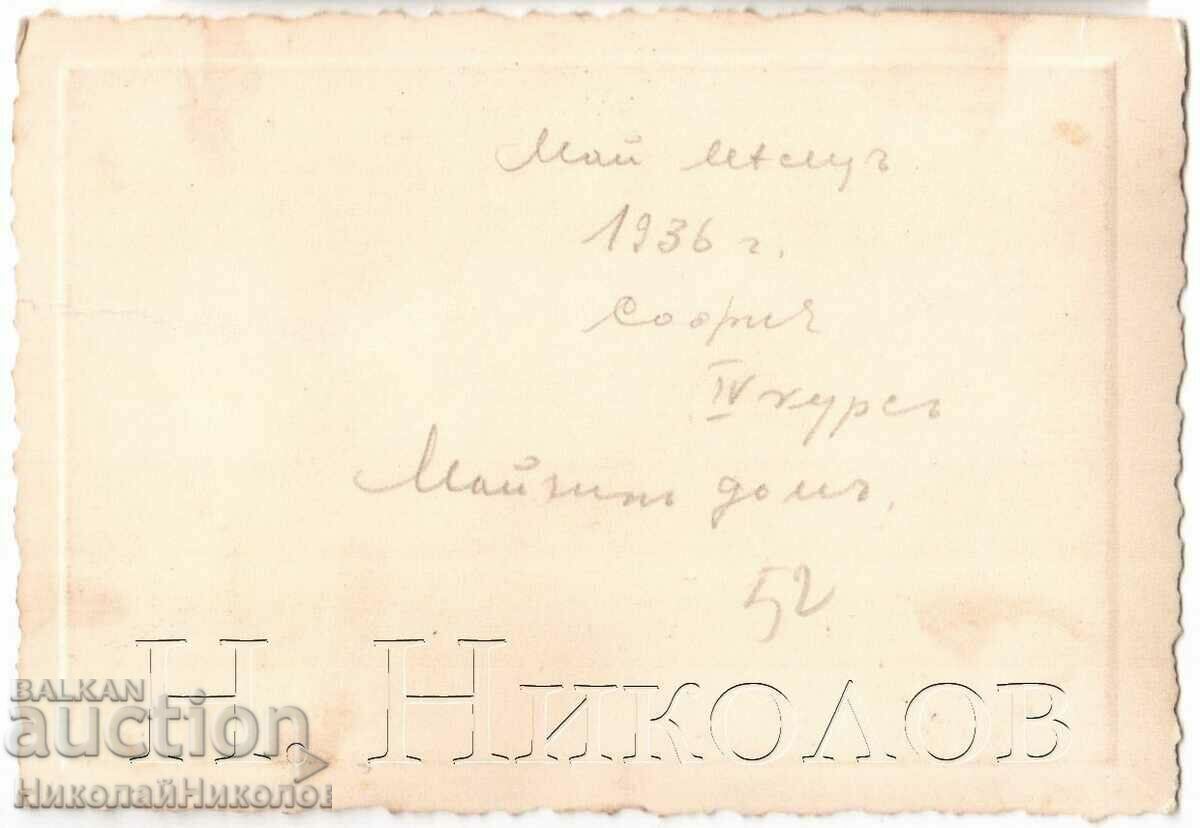 Май мѣсецъ
1936 г.
София
IV курсъ
Майчинъ домъ.
52
Н. Николов
BALKAN
auction
НиколайНиколов